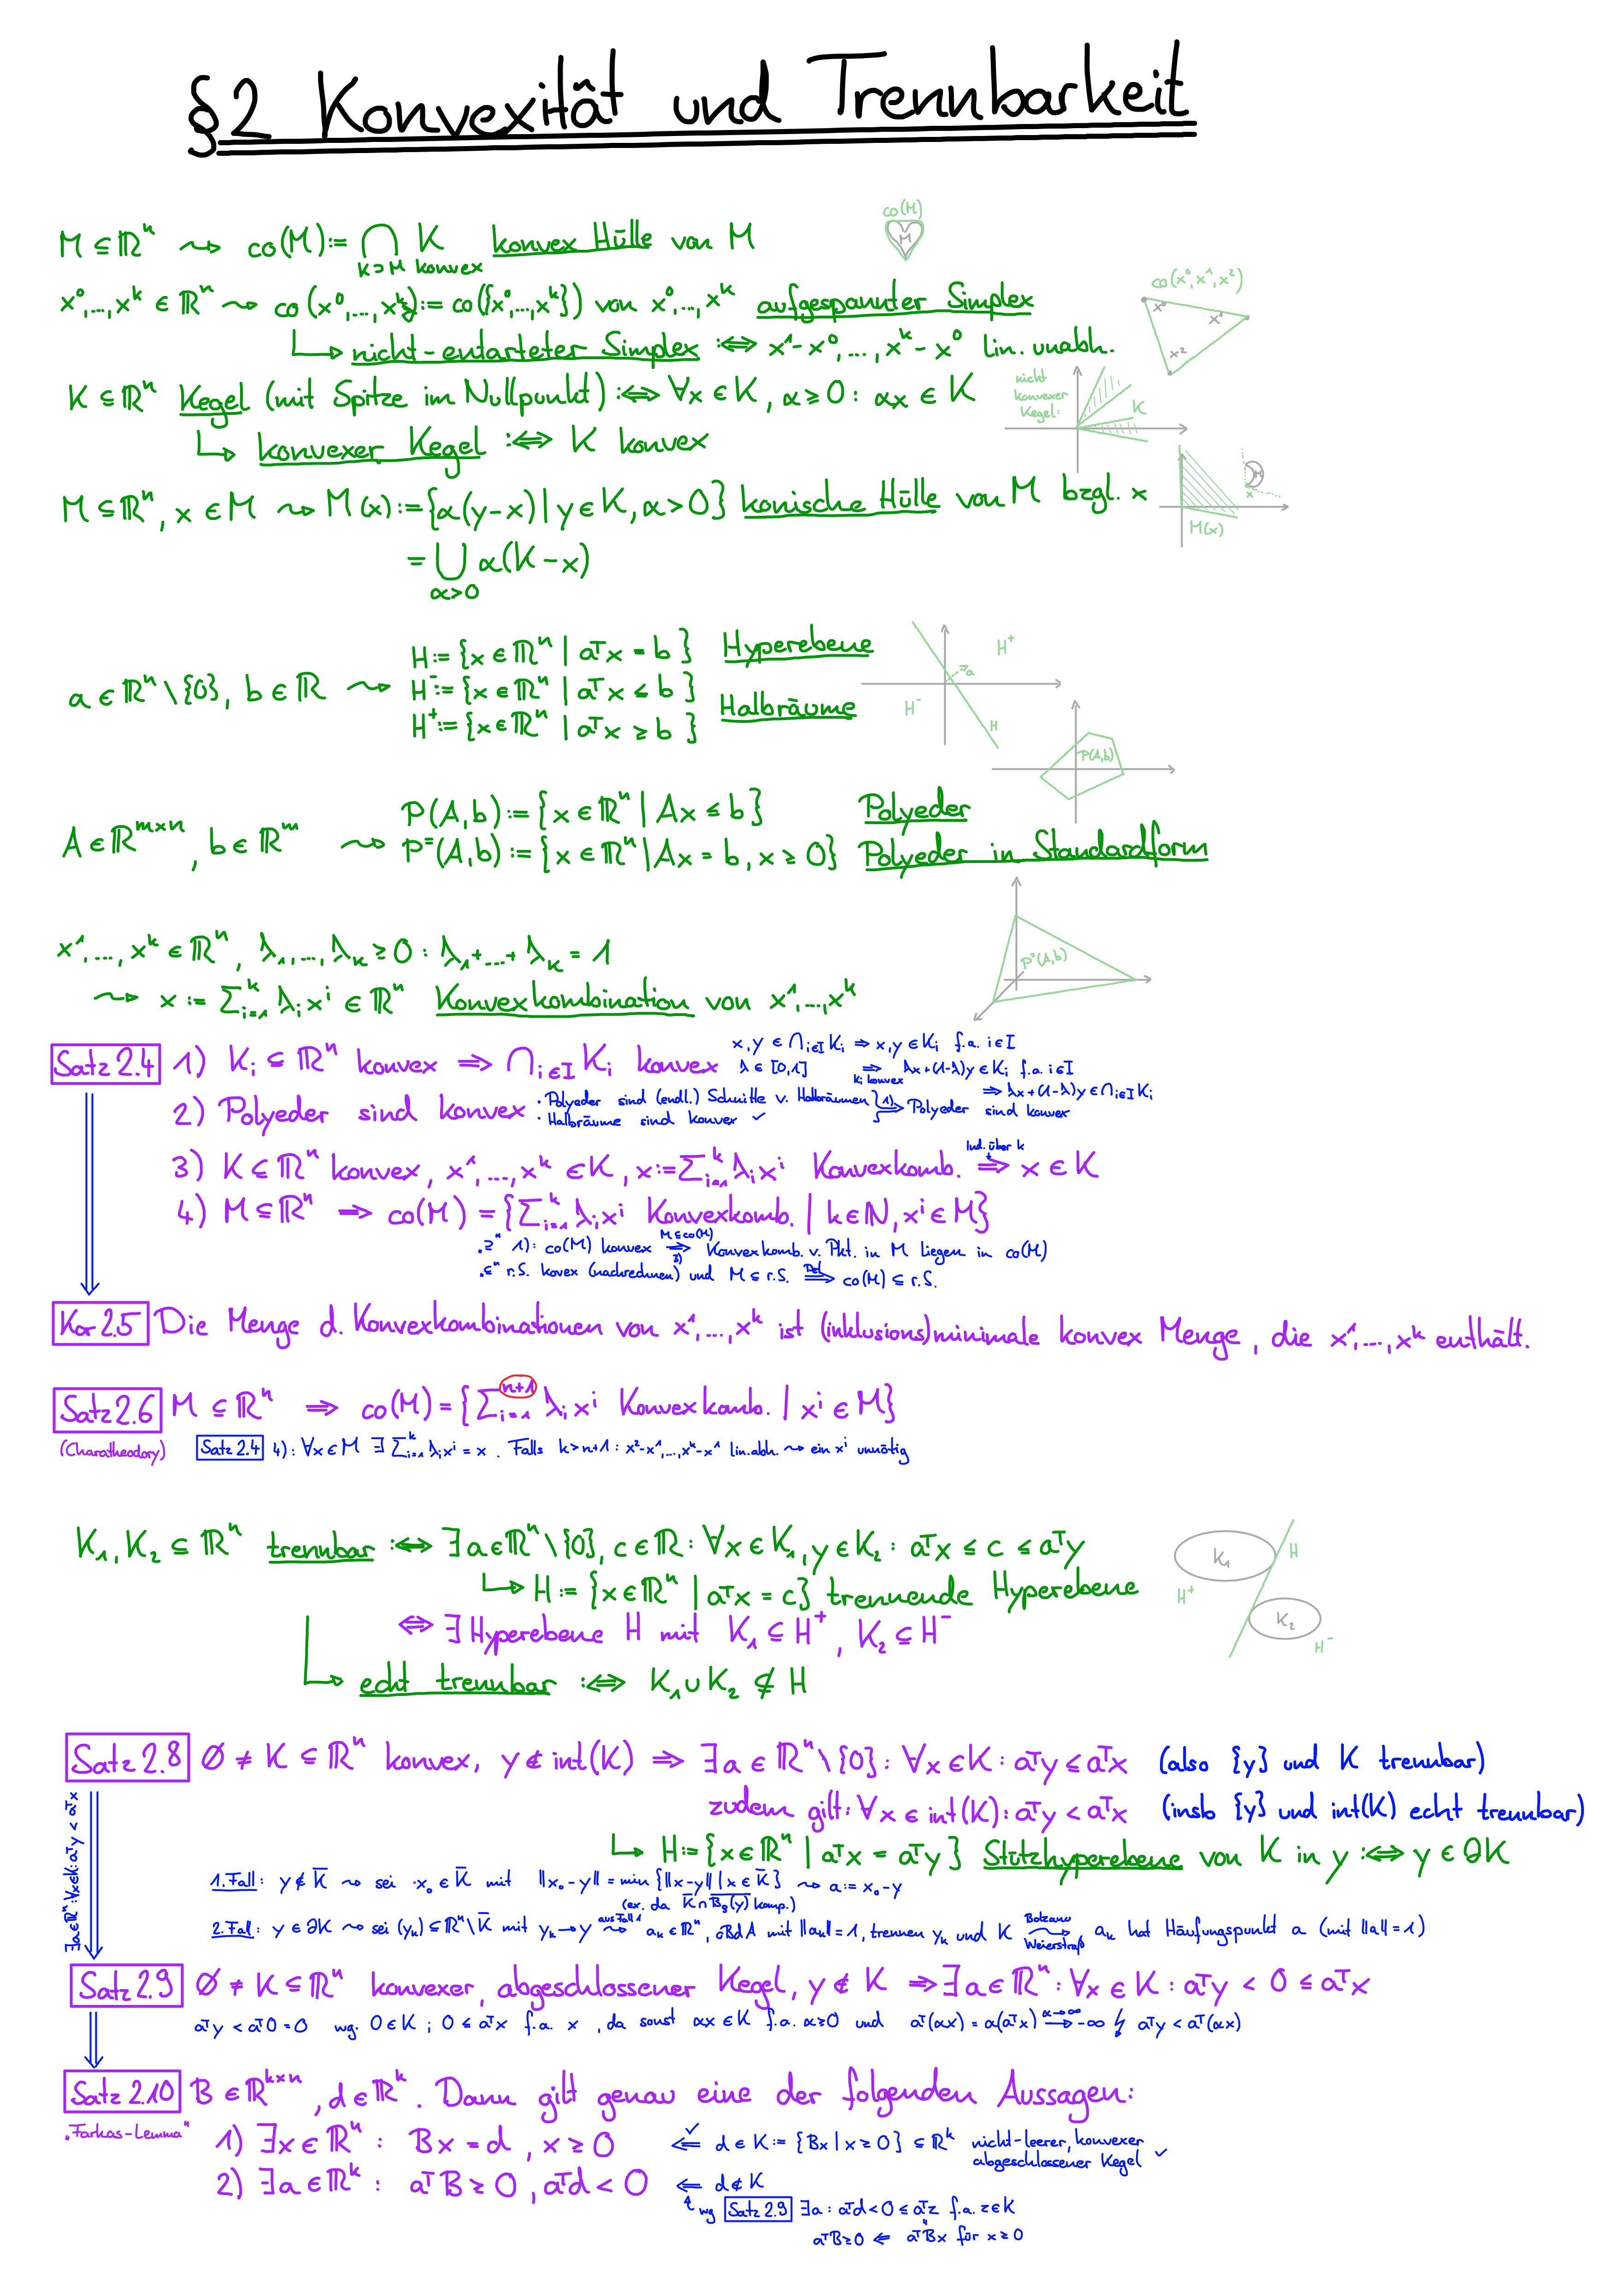 §2 Konvexität und Trennbarkeit
M ⊆ ℝⁿ ⤳ co(M) := ⋂ K konvex Hülle von M
K⊃M konvex
co(M)
M
x⁰,...,xᵏ ∈ ℝⁿ ⤳ co(x⁰,...,xᵏ) := co({x⁰,...,xᵏ}) von x⁰,...,xᵏ aufgespannter Simplex
↳ nicht-entarteter Simplex :⇔ x¹-x⁰,...,xᵏ-x⁰ lin. unabh.
co(x⁰,x¹,x²)
x⁰
x¹
x²
K ⊆ ℝⁿ Kegel (mit Spitze im Nullpunkt) :⇔ ∀x ∈ K, α ≥ 0 : αx ∈ K
↳ konvexer Kegel :⇔ K konvex
nicht
konvexer
Kegel:
K
M ⊆ ℝⁿ, x ∈ M ⤳ M(x) := {α(y-x) | y ∈ K, α > 0} konische Hülle von M bzgl. x
= ⋃ α(K-x)
α>0
M
x
M(x)
H := {x ∈ ℝⁿ | aᵀx = b} Hyperebene
a ∈ ℝⁿ \ {0}, b ∈ ℝ ⤳ H⁻ := {x ∈ ℝⁿ | aᵀx ≤ b}
H⁺ := {x ∈ ℝⁿ | aᵀx ≥ b} Halbräume
H⁺
a
H⁻
H
P(A,b)
P(A,b) := {x ∈ ℝⁿ | Ax ≤ b} Polyeder
A ∈ ℝᵐˣⁿ, b ∈ ℝᵐ ⤳ P⁼(A,b) := {x ∈ ℝⁿ | Ax = b, x ≥ 0} Polyeder in Standardform
x¹,...,xᵏ ∈ ℝⁿ, λ₁,...,λₖ ≥ 0 : λ₁+...+λₖ = 1
⤳ x := ∑ᵢ₌₁ᵏ λᵢxⁱ ∈ ℝⁿ Konvexkombination von x¹,...,xᵏ
P⁼(A,b)
Satz 2.4 1) Kᵢ ⊆ ℝⁿ konvex ⇒ ⋂ᵢ∈I Kᵢ konvex
x,y ∈ ⋂ᵢ∈I Kᵢ ⇒ x,y ∈ Kᵢ f.a. i∈I
λ ∈ [0,1] ⇒ λx+(1-λ)y ∈ Kᵢ f.a. i∈I
Kᵢ konvex
⇒ λx+(1-λ)y ∈ ⋂ᵢ∈I Kᵢ
2) Polyeder sind konvex
· Polyeder sind (endl.) Schnitte v. Halbräumen
· Halbräume sind konvex ✓
} 1) ⇒ Polyeder sind konvex
3) K ⊆ ℝⁿ konvex, x¹,...,xᵏ ∈ K, x := ∑ᵢ₌₁ᵏ λᵢxⁱ Konvexkomb. ⇒ x ∈ K
Ind. über k
4) M ⊆ ℝⁿ ⇒ co(M) = {∑ᵢ₌₁ᵏ λᵢxⁱ Konvexkomb. | k∈ℕ, xⁱ ∈ M}
„⊇" 1): co(M) konvex ⇒ Konvexkomb. v. Pkt. in M liegen in co(M)
M⊆co(M)
3)
„⊆" r.S. kovex (nachrechnen) und M ⊆ r.S. ⇒ co(M) ⊆ r.S.
Def
Kor 2.5 Die Menge d. Konvexkombinationen von x¹,...,xᵏ ist (inklusions)minimale konvex Menge, die x¹,...,xᵏ enthält.
Satz 2.6 M ⊆ ℝⁿ ⇒ co(M) = {∑ᵢ₌₁ⁿ⁺¹ λᵢxⁱ Konvexkomb. | xⁱ ∈ M}
(Charatheodory) Satz 2.4 4): ∀x ∈ M ∃ ∑ᵢ₌₁ᵏ λᵢxⁱ = x . Falls k > n+1 : x²-x¹,...,xᵏ-x¹ lin.abh. ⤳ ein xⁱ unnötig
K₁, K₂ ⊆ ℝⁿ trennbar :⇔ ∃ a∈ℝⁿ \ {0}, c∈ℝ : ∀x ∈ K₁, y∈K₂ : aᵀx ≤ c ≤ aᵀy
↳ H := {x∈ℝⁿ | aᵀx = c} trennende Hyperebene
⇔ ∃ Hyperebene H mit K₁ ⊆ H⁺, K₂ ⊆ H⁻
↳ echt trennbar :⇔ K₁ ∪ K₂ ⊈ H
K₁
H
H⁺
K₂
H⁻
Satz 2.8 ∅ ≠ K ⊆ ℝⁿ konvex, y ∉ int(K) ⇒ ∃ a ∈ ℝⁿ \ {0} : ∀x ∈ K : aᵀy ≤ aᵀx (also {y} und K trennbar)
zudem gilt: ∀x ∈ int(K) : aᵀy < aᵀx (insb {y} und int(K) echt trennbar)
↳ H := {x ∈ ℝⁿ | aᵀx = aᵀy} Stützhyperebene von K in y :⇔ y ∈ ∂K
∃a∈ℝⁿ:∀x∈K:aᵀy < aᵀx
1. Fall: y ∉ K̅ ⤳ sei x₀ ∈ K̅ mit ||x₀-y|| = min {||x-y|| | x ∈ K̅} ⤳ a := x₀-y
(ex. da K̅ ∩ B̅ᵟ(y) komp.)
2. Fall: y ∈ ∂K ⤳ sei (yₖ) ⊆ ℝⁿ\K̅ mit yₖ → y ⤳ aₖ ∈ ℝⁿ, oBdA mit ||aₖ|| = 1, trennen yₖ und K ⤳ aₖ hat Häufungspunkt a (mit ||a|| = 1)
aus Fall 1
Bolzano
Weierstraß
Satz 2.9 ∅ ≠ K ⊆ ℝⁿ konvexer, abgeschlossener Kegel, y ∉ K ⇒ ∃ a ∈ ℝⁿ : ∀x ∈ K : aᵀy < 0 ≤ aᵀx
aᵀy < aᵀ0 = 0 wg. 0∈K ; 0 ≤ aᵀx f.a. x , da sonst αx ∈ K f.a. α≥0 und aᵀ(αx) = α(aᵀx) → -∞ ↯ aᵀy < aᵀ(αx)
α→∞
Satz 2.10 B ∈ ℝᵏˣⁿ, d ∈ ℝᵏ. Dann gilt genau eine der folgenden Aussagen:
„Farkas-Lemma"
1) ∃x ∈ ℝⁿ : Bx = d, x ≥ 0 ⇐ d ∈ K := {Bx | x ≥ 0} ⊆ ℝᵏ nicht-leerer, konvexer
✓
abgeschlossener Kegel ✓
2) ∃a ∈ ℝᵏ : aᵀB ≥ 0, aᵀd < 0 ⇐ d ∉ K
wg Satz 2.9 ∃a : aᵀd < 0 ≤ aᵀz f.a. z∈K
aᵀB≥0 ⇐ aᵀBx für x ≥ 0